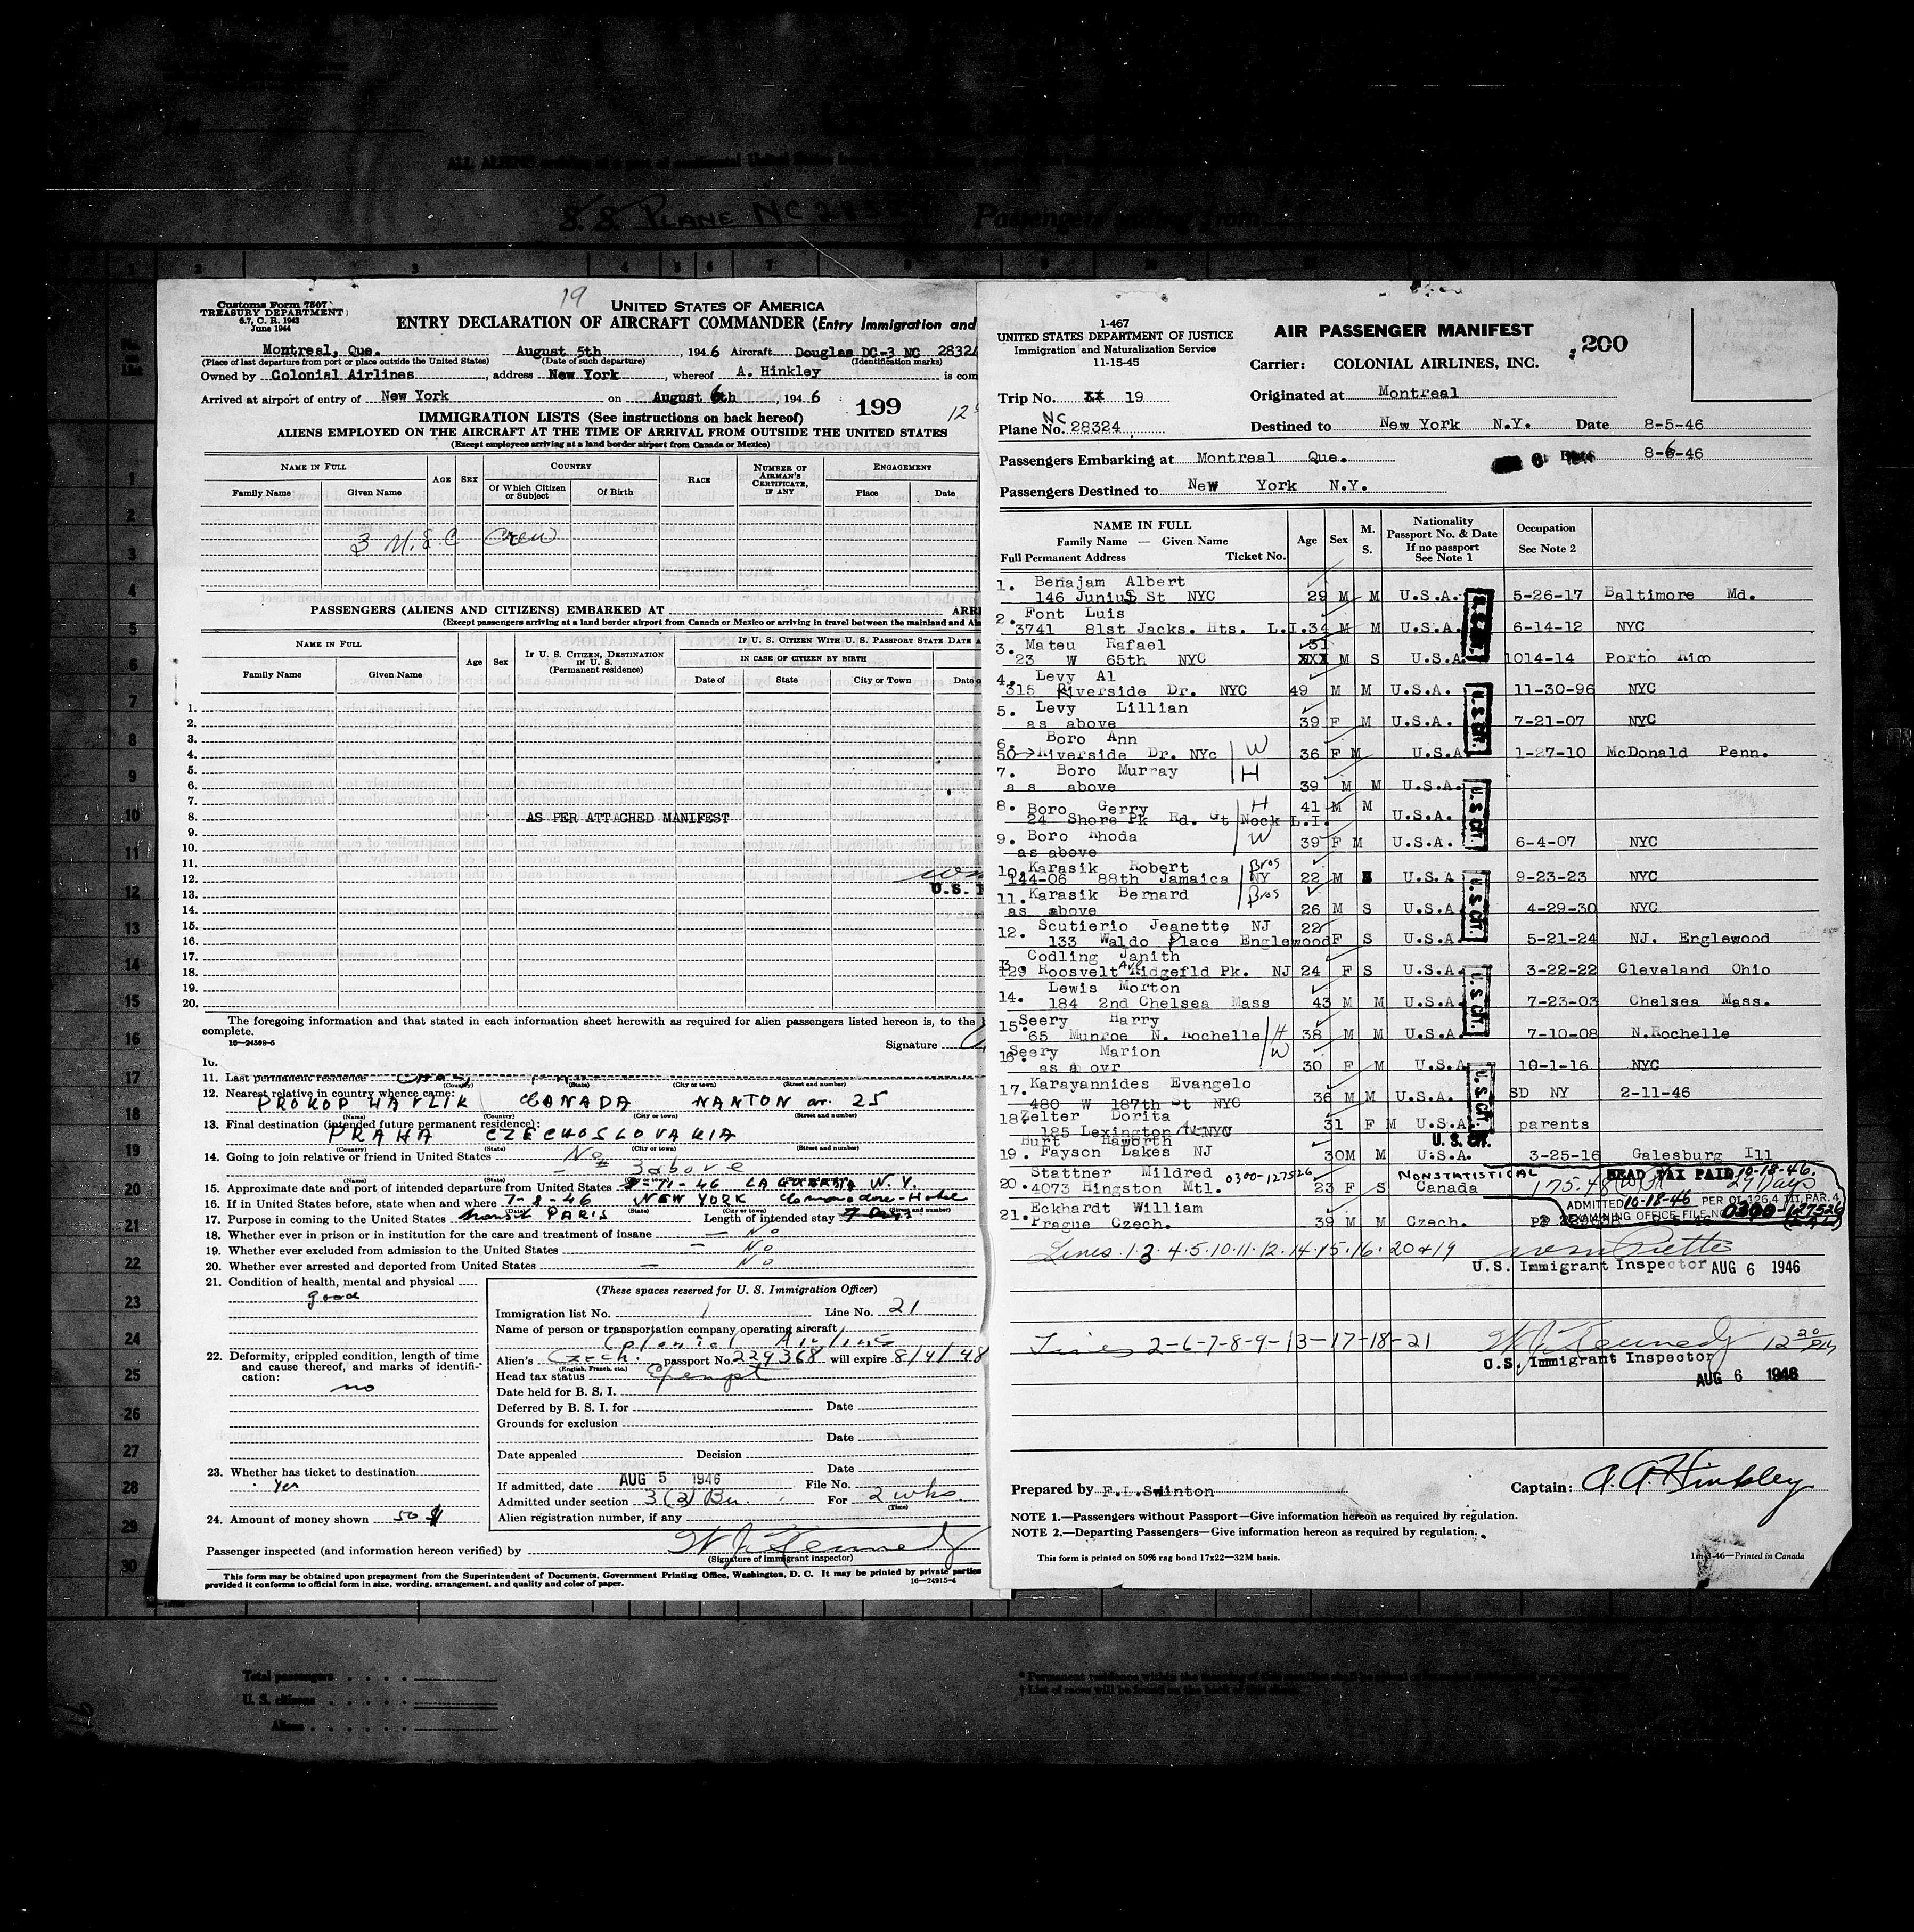 S.S. PLANE NC
Passengers sailing from
19
Customs Form 7507
TREASURY DEPARTMENT
6.7, C. R. 1943
June 1944
UNITED STATES OF AMERICA
ENTRY DECLARATION OF AIRCRAFT COMMANDER (Entry Immigration and
Montreal, Que. August 5th, 1946 Aircraft Douglas DC-3 NC 28324
(Place of last departure from port or place outside the United States) (Date of such departure) (Identification marks)
Owned by Colonial Airlines, address New York, whereof A. Hinkley is com
Arrived at airport of entry of New York on August 6th, 1946
199
IMMIGRATION LISTS (See instructions on back hereof)
ALIENS EMPLOYED ON THE AIRCRAFT AT THE TIME OF ARRIVAL FROM OUTSIDE THE UNITED STATES
(Except employees arriving at a land border airport from Canada or Mexico)
NAME IN FULL AGE SEX COUNTRY RACE NUMBER OF AIRMAN'S CERTIFICATE, IF ANY ENGAGEMENT
Family Name Given Name Of Which Citizen or Subject Of Birth Place Date
3 U.S.C Crew
PASSENGERS (ALIENS AND CITIZENS) EMBARKED AT ARRI
(Except passengers arriving at a land border airport from Canada or Mexico or arriving in travel between the mainland and
NAME IN FULL Age Sex IF U. S. CITIZEN, DESTINATION IN U. S. (Permanent residence) IF U. S. CITIZEN WITH U. S. PASSPORT STATE DATE A
IN CASE OF CITIZEN BY BIRTH
Family Name Given Name Date of State City or Town Date o
1.
2.
3.
4.
5.
6.
7.
8. AS PER ATTACHED MANIFEST
9.
10.
11.
12.
13.
14.
15.
16.
17.
18.
19.
20.
The foregoing information and that stated in each information sheet herewith as required for alien passengers listed hereon is, to the
complete.
16—24598-5
Signature
10.
11. Last permanent residence
(Country) (State) (City or town) (Street and number)
12. Nearest relative in country whence came:
PROKOP HAVLIK CANADA NANTON av. 25
(Name) (Country) (City or town) (Street and number)
13. Final destination (intended future permanent residence):
PRAHA CZECHOSLOVAKIA
(Country) (State) (City or town) (Street and number)
14. Going to join relative or friend in United States No
(Name) (State) (City or town) (Street and number)
15. Approximate date and port of intended departure from United States 8-11-46 LA GUARDIA N.Y.
16. If in United States before, state when and where 7-2-46 NEW YORK Commodore-Hotel
(Date) (State) (City or town) (Street and number)
17. Purpose in coming to the United States Transit PARIS Length of intended stay 7 Days
18. Whether ever in prison or in institution for the care and treatment of insane — No
19. Whether ever excluded from admission to the United States — No
20. Whether ever arrested and deported from United States — No
21. Condition of health, mental and physical
good
22. Deformity, crippled condition, length of time and cause thereof, and marks of identification:
no
23. Whether has ticket to destination
Yes
24. Amount of money shown 50 $
(These spaces reserved for U. S. Immigration Officer)
Immigration list No. 1 Line No. 21
Name of person or transportation company operating aircraft
Colonial Airlines
Alien's Czech. passport No. 229368 will expire 8/4/48
(English, French, etc.)
Head tax status Exempt
Date held for B. S. I.
Deferred by B. S. I. for Date
Grounds for exclusion
Date
Date appealed Decision
Date
If admitted, date AUG 5 1946 File No.
Admitted under section 3(2) Bu. For 2 wks.
(Time)
Alien registration number, if any
Passenger inspected (and information hereon verified) by W J Kennedy
(Signature of immigrant inspector)
This form may be obtained upon prepayment from the Superintendent of Documents, Government Printing Office, Washington, D. C. It may be printed by private parties
provided it conforms to official form in size, wording, arrangement, and quality and color of paper.
16—24915-4
1-467
UNITED STATES DEPARTMENT OF JUSTICE
Immigration and Naturalization Service
11-15-45
AIR PASSENGER MANIFEST
200
Carrier: COLONIAL AIRLINES, INC.
Trip No. 19 Originated at Montreal
Plane No. NC 28324 Destined to New York N.Y. Date 8-5-46
Passengers Embarking at Montreal Que. Date 8-6-46
Passengers Destined to New York N.Y.
NAME IN FULL
Family Name — Given Name
Full Permanent Address Ticket No.
Age Sex M. S. Nationality Passport No. & Date If no passport See Note 1 Occupation See Note 2
1. Benajam Albert
146 Junius St NYC 29 M M U.S.A. 5-26-17 Baltimore Md.
2. Font Luis
3741 81st Jacks. Hts. L.I. 34 M M U.S.A. 6-14-12 NYC
3. Mateu Rafael 31
23 W 65th NYC XXX M S U.S.A. 1014-14 Porto Rico
4. Levy Al
315 Riverside Dr. NYC 49 M M U.S.A. 11-30-96 NYC
5. Levy Lillian
as above 39 F M U.S.A. 7-21-07 NYC
6. Boro Ann W
50 Riverside Dr. NYc 36 F M U.S.A 1-27-10 McDonald Penn.
7. Boro Murray H
a s above 39 M M U.S.A.
8. Boro Gerry H 41 M M
24 Shore Pk Rd. Gt Neck L.I. U.S.A.
9. Boro Rhoda W
as above 39 F M U.S.A. 6-4-07 NYC
10. Karasik Robert Bros
144-06 88th Jamaica NY 22 M U.S.A 9-23-23 NYC
11. Karasik Bernard Bros
as above 26 M S U.S.A 4-29-30 NYC
12. Scutierio Jeanette NJ 22
133 Waldo Place Englewood F S U.S.A. 5-21-24 NJ. Englewood
13. Codling Janith
129 Roosvelt Ave Ridgefld Pk. NJ 24 F S U.S.A. 3-22-22 Cleveland Ohio
14. Lewis Morton
184 2nd Chelsea Mass 43 M M U.S.A. 7-23-03 Chelsea Mass.
15. Seery Harry
65 Munroe N. Rochelle H 38 M M U.S.A. 7-10-08 N.Rochelle
16. Seery Marion W
as a ovr 30 F M U.S.A 10-1-16 NYC
17. Karayannides Evangelo
480 W 187th St NYC 36 M M U.S.A. SD NY 2-11-46
18. Zelter Dorita
125 Lexington Av NYC 31 F M U.S.A. parents
U.S. Cit.
19. Hurt Haworth
Fayson Lakes NJ 30M M U.S.A. 3-25-16 Galesburg Ill
20. Stattner Mildred 0300-127526 NONSTATISTICAL HEAD TAX PAID 10-18-46.
4073 Hingston Mtl. 23 F S Canada 29 Days
ADMITTED 10-18-46 PER OI 126.4 INT. PAR. 4
EXAMINING OFFICE FILE NO 0300-127526
21. Eckhardt William
Prague Czech. 39 M M Czech.
U.S CIT.
U.S CIT.
U.S CIT.
U.S CIT.
U.S CIT.
Lines 1·3·4·5·10·11·12·14·15·16·20&19
U.S. Immigrant Inspector AUG 6 1946
Lines 2-6-7-8-9-13-17-18-21 W J Kennedy 12 20 PM
U.S. Immigrant Inspector
AUG 6 1946
Prepared by F.L.Swinton Captain: A. A. Hinkley
NOTE 1.—Passengers without Passport—Give information hereon as required by regulation.
NOTE 2.—Departing Passengers—Give information hereon as required by regulation.
This form is printed on 50% rag bond 17x22—32M basis.
1m-3-46—Printed in Canada
Total passengers
U. S. citizens
Aliens